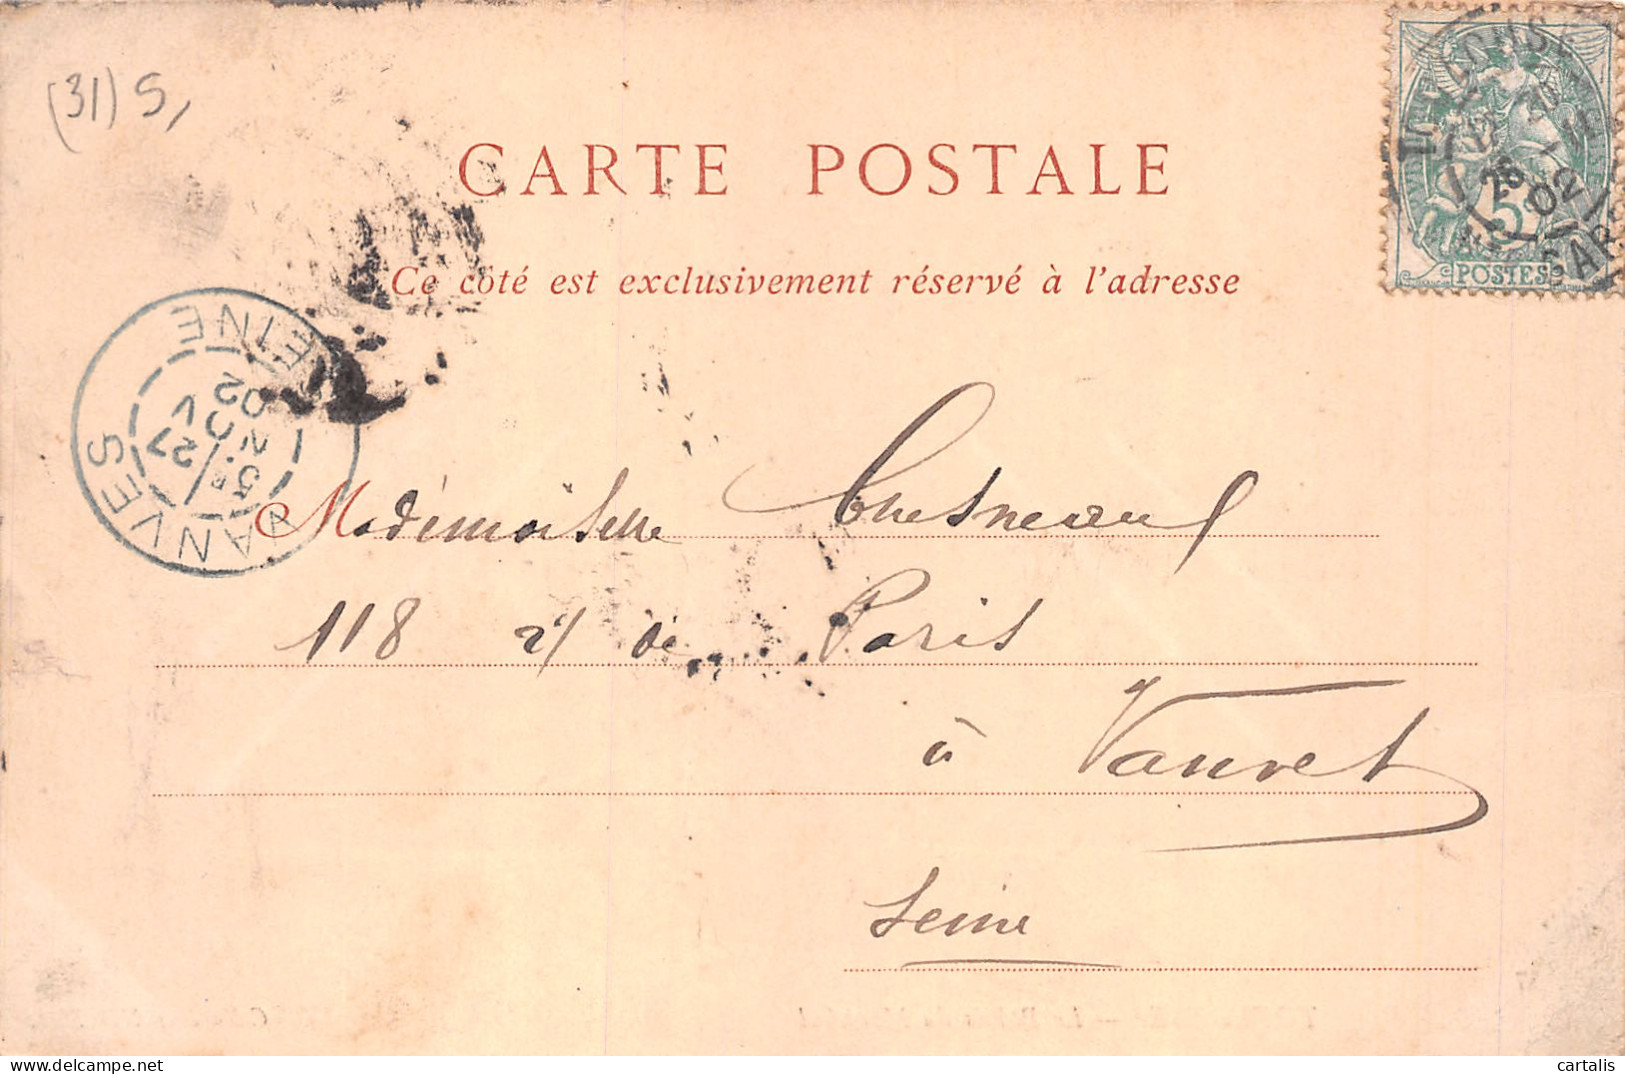 (31) S,
CARTE POSTALE
Ce côté est exclusivement réservé à l'adresse
TOULOUSE
26
02
GARE
5
POSTES
VANVES
SEINE
5E
27
NOV
02
Mademoiselle Chesneau
118 r/ de Paris
à Vanves
Seine
cartalis